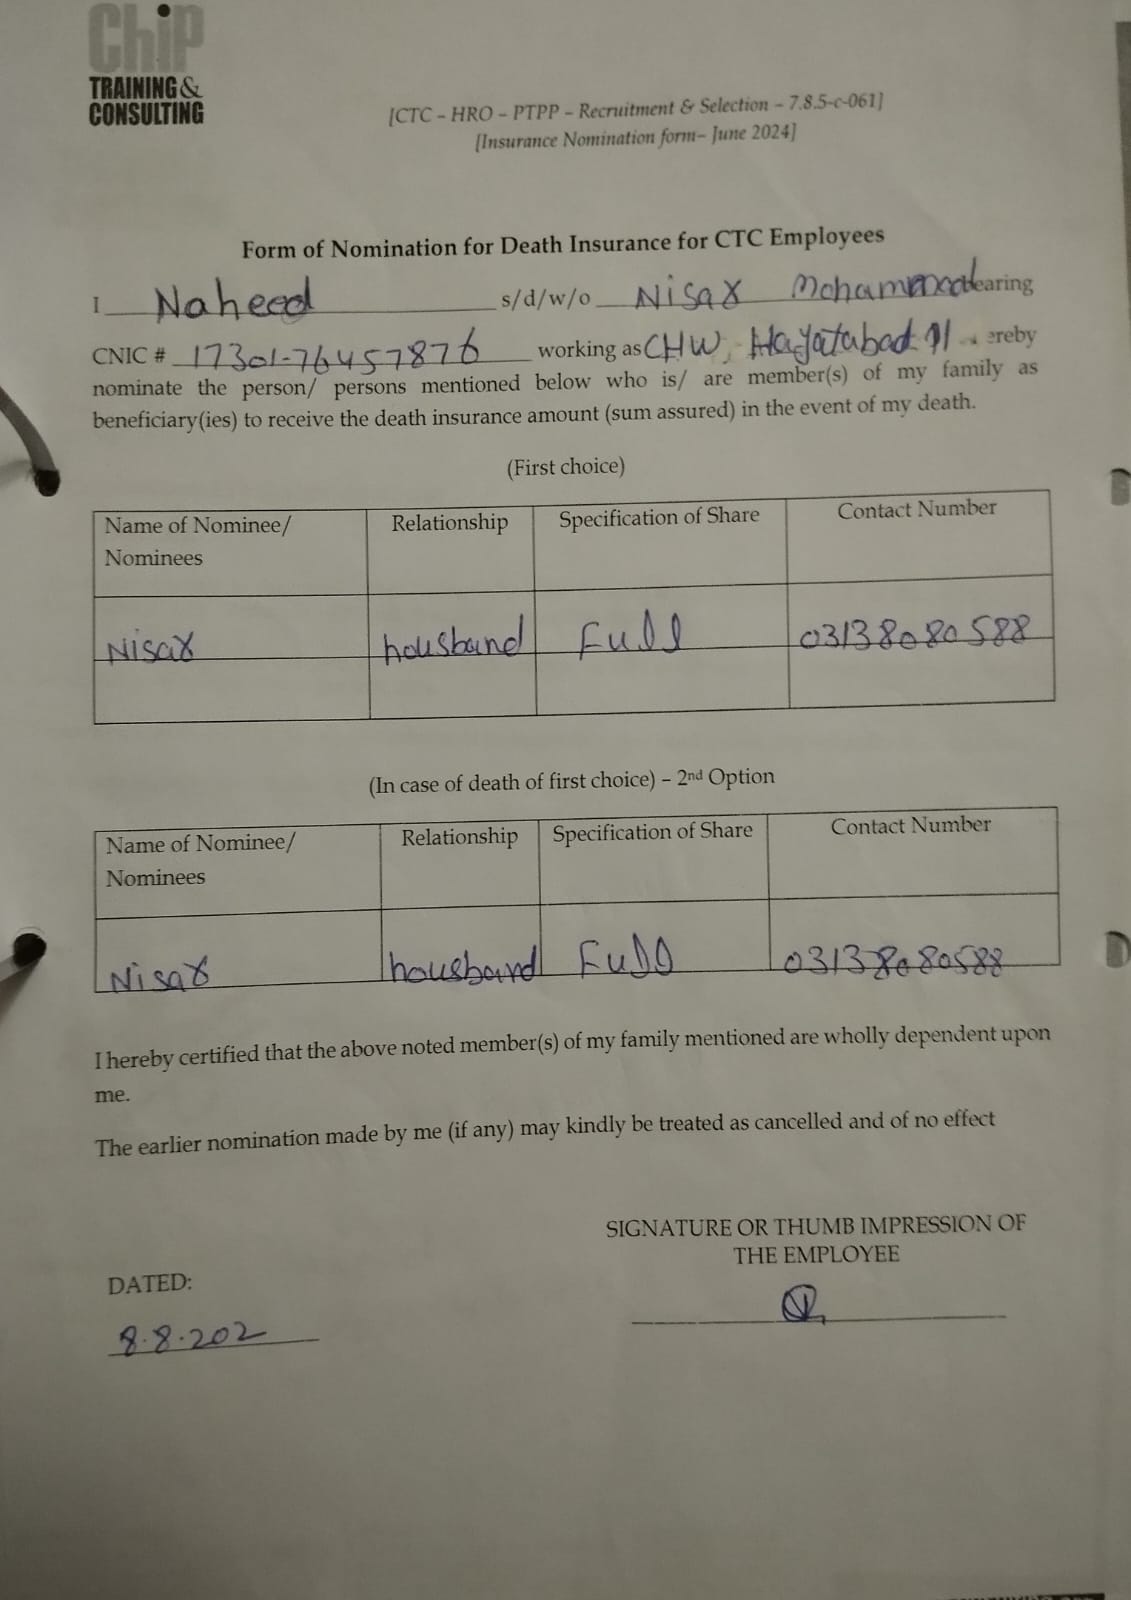 Chip
TRAINING &
CONSULTING
[CTC – HRO – PTPP – Recruitment & Selection – 7.8.5-c-061]
[Insurance Nomination form– June 2024]
Form of Nomination for Death Insurance for CTC Employees
I Naheed s/d/w/o Nisar Mohammad bearing
CNIC # 17301-76457876 working as CHW, Hayatabad ereby
nominate the person/ persons mentioned below who is/ are member(s) of my family as
beneficiary(ies) to receive the death insurance amount (sum assured) in the event of my death.
(First choice)
Name of Nominee/ Relationship Specification of Share Contact Number
Nominees
Nisar housband Full 03138080588
(In case of death of first choice) – 2nd Option
Name of Nominee/ Relationship Specification of Share Contact Number
Nominees
Nisar housband Full 03138080588
I hereby certified that the above noted member(s) of my family mentioned are wholly dependent upon
me.
The earlier nomination made by me (if any) may kindly be treated as cancelled and of no effect
SIGNATURE OR THUMB IMPRESSION OF
THE EMPLOYEE
DATED:
8.8.202